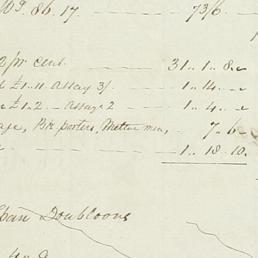 109. 86. 17. 73/6
2 pr cent. 31 .. 1 .. 8
£1..11 Assay 3/. 1 .. 14
£1..2 — Assay 2 1 .. 4
Bk porters, 7 .. 6
1 .. 18 .. 10.
Doubloons
4 .. 9